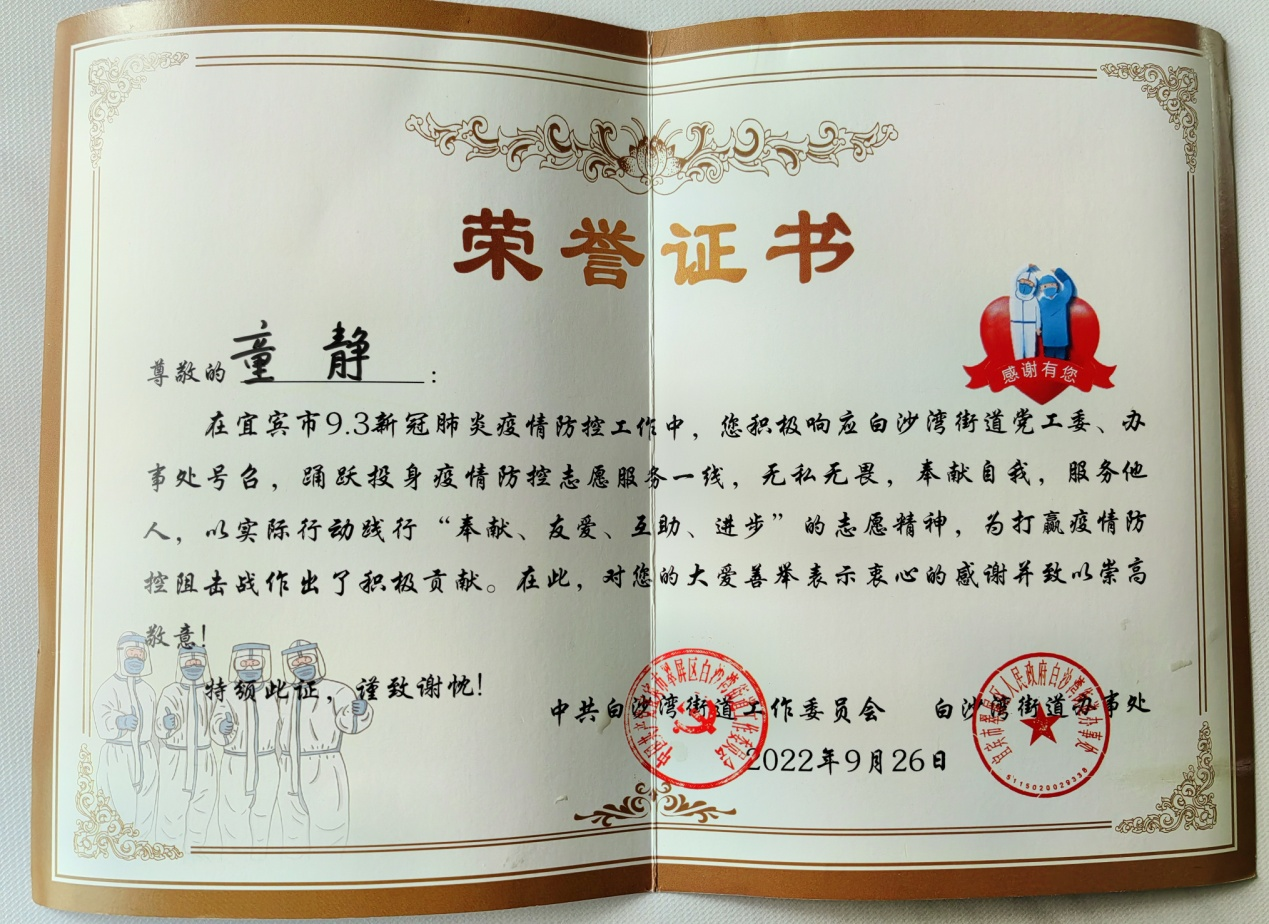 荣誉证书
感谢有您
尊敬的童 静：
在宜宾市9.3新冠肺炎疫情防控工作中，您积极响应白沙湾街道党工委、办
事处号召，踊跃投身疫情防控志愿服务一线，无私无畏，奉献自我，服务他
人，以实际行动践行“奉献、友爱、互助、进步”的志愿精神，为打赢疫情防
控阻击战作出了积极贡献。在此，对您的大爱善举表示衷心的感谢并致以崇高
敬意！
特颁此证，谨致谢忱！
中共白沙湾街道工作委员会 白沙湾街道办事处
2022年9月26日
中国共产党宜宾市翠屏区白沙湾街道工作委员会
宜宾市翠屏区人民政府白沙湾街道办事处
5115020029338